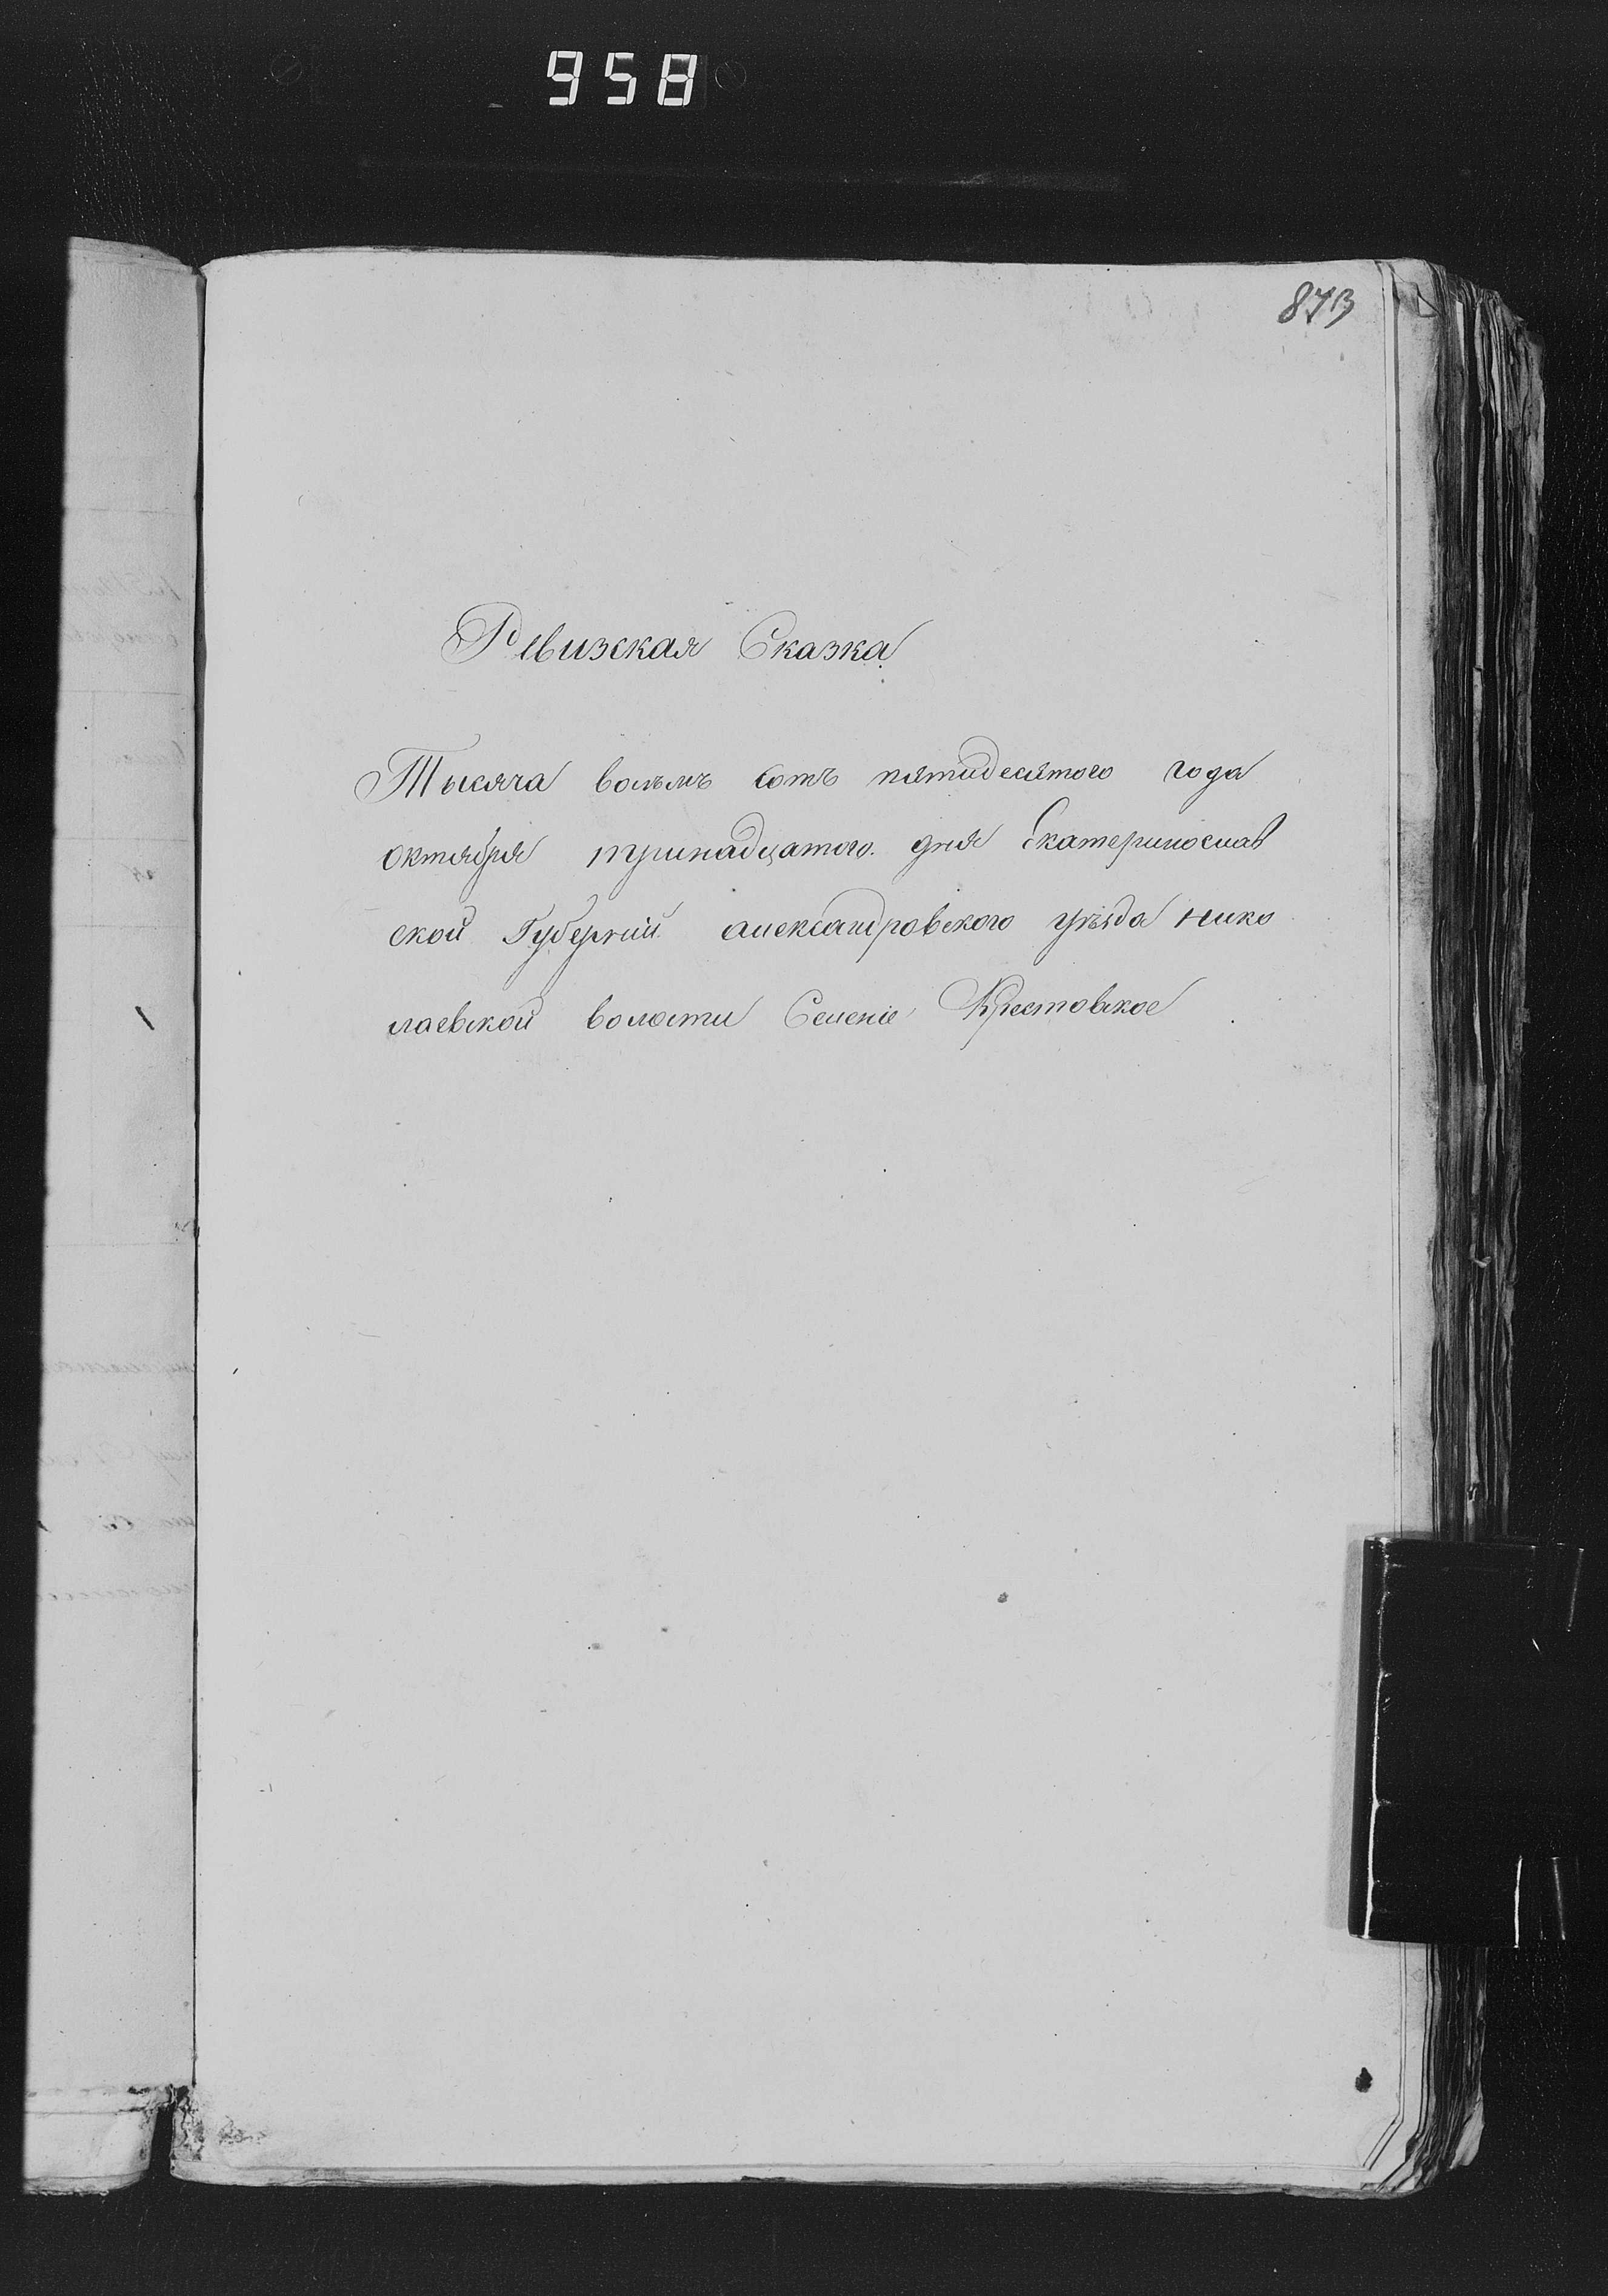 958
873
Ревизская Сказка
Тысяча восъмъ сотъ пятидесятого года
октября тринадцатого дня Екатеринослав
ской Губерніи александровского уѣзда нико
лаевской волости Селеніе Крестовское